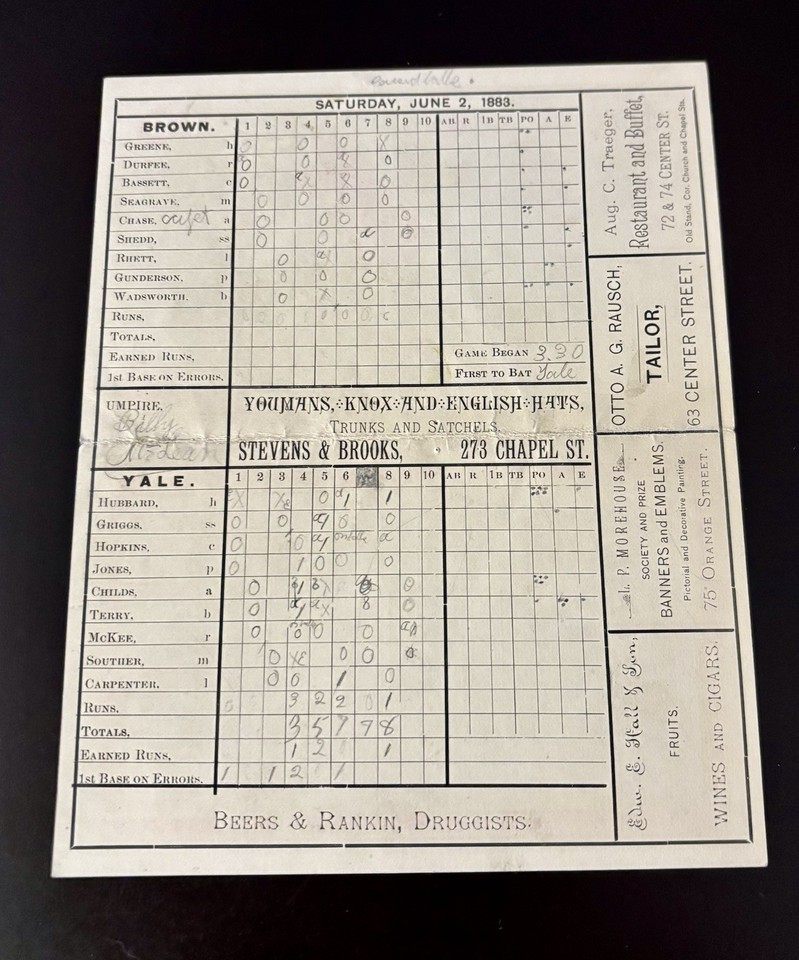 SATURDAY, JUNE 2, 1883.
BROWN. 1 2 3 4 5 6 7 8 9 10 AB R 1B TB PO A E
GREENE, h 0 0 0 X
DURFEE, r 0 0 0
BASSETT, c 0 0
SEAGRAVE, m 0 0 0 0
CHASE, capt a 0 0 0 0
SHEDD, ss 0 0 0
RHETT, l 0 0
GUNDERSON, p 0 0 0
WADSWORTH, b 0 X 0
RUNS,
TOTALS,
EARNED RUNS,
1st BASE ON ERRORS.
GAME BEGAN 3.30
FIRST TO BAT Yale
UMPIRE,
Billy
McLean
YOUMANS, KNOX AND ENGLISH HATS,
TRUNKS AND SATCHELS,
STEVENS & BROOKS, 273 CHAPEL ST.
YALE. 1 2 3 4 5 6 8 9 10 AB R 1B TB PO A E
HUBBARD, h X 0 1 1
GRIGGS, ss 0 0 0 0
HOPKINS, c 0 0
JONES, p 0 1 0 0 0
CHILDS, a 0 0
TERRY, b 0 8 0
MCKEE, r 0 0 0 0
SOUTHER, m 0 0 0
CARPENTER, l 0 0 1 0
RUNS, 0 3 2 2 0 1
TOTALS, 3 5 7 7 8
EARNED RUNS, 1 2 1
1st BASE ON ERRORS. 1 1 2 1
BEERS & RANKIN, DRUGGISTS.
Aug. C. Traeger,
Restaurant and Buffet,
72 & 74 CENTER ST.
Old Stand, Cor. Church and Chapel Sts.
OTTO A. G. RAUSCH,
TAILOR,
63 CENTER STREET.
L. P. MOREHOUSE
SOCIETY AND PRIZE
BANNERS and EMBLEMS.
Pictorial and Decorative Painting.
75 ORANGE STREET.
Edw. E. Hall & Son,
FRUITS.
WINES AND CIGARS.